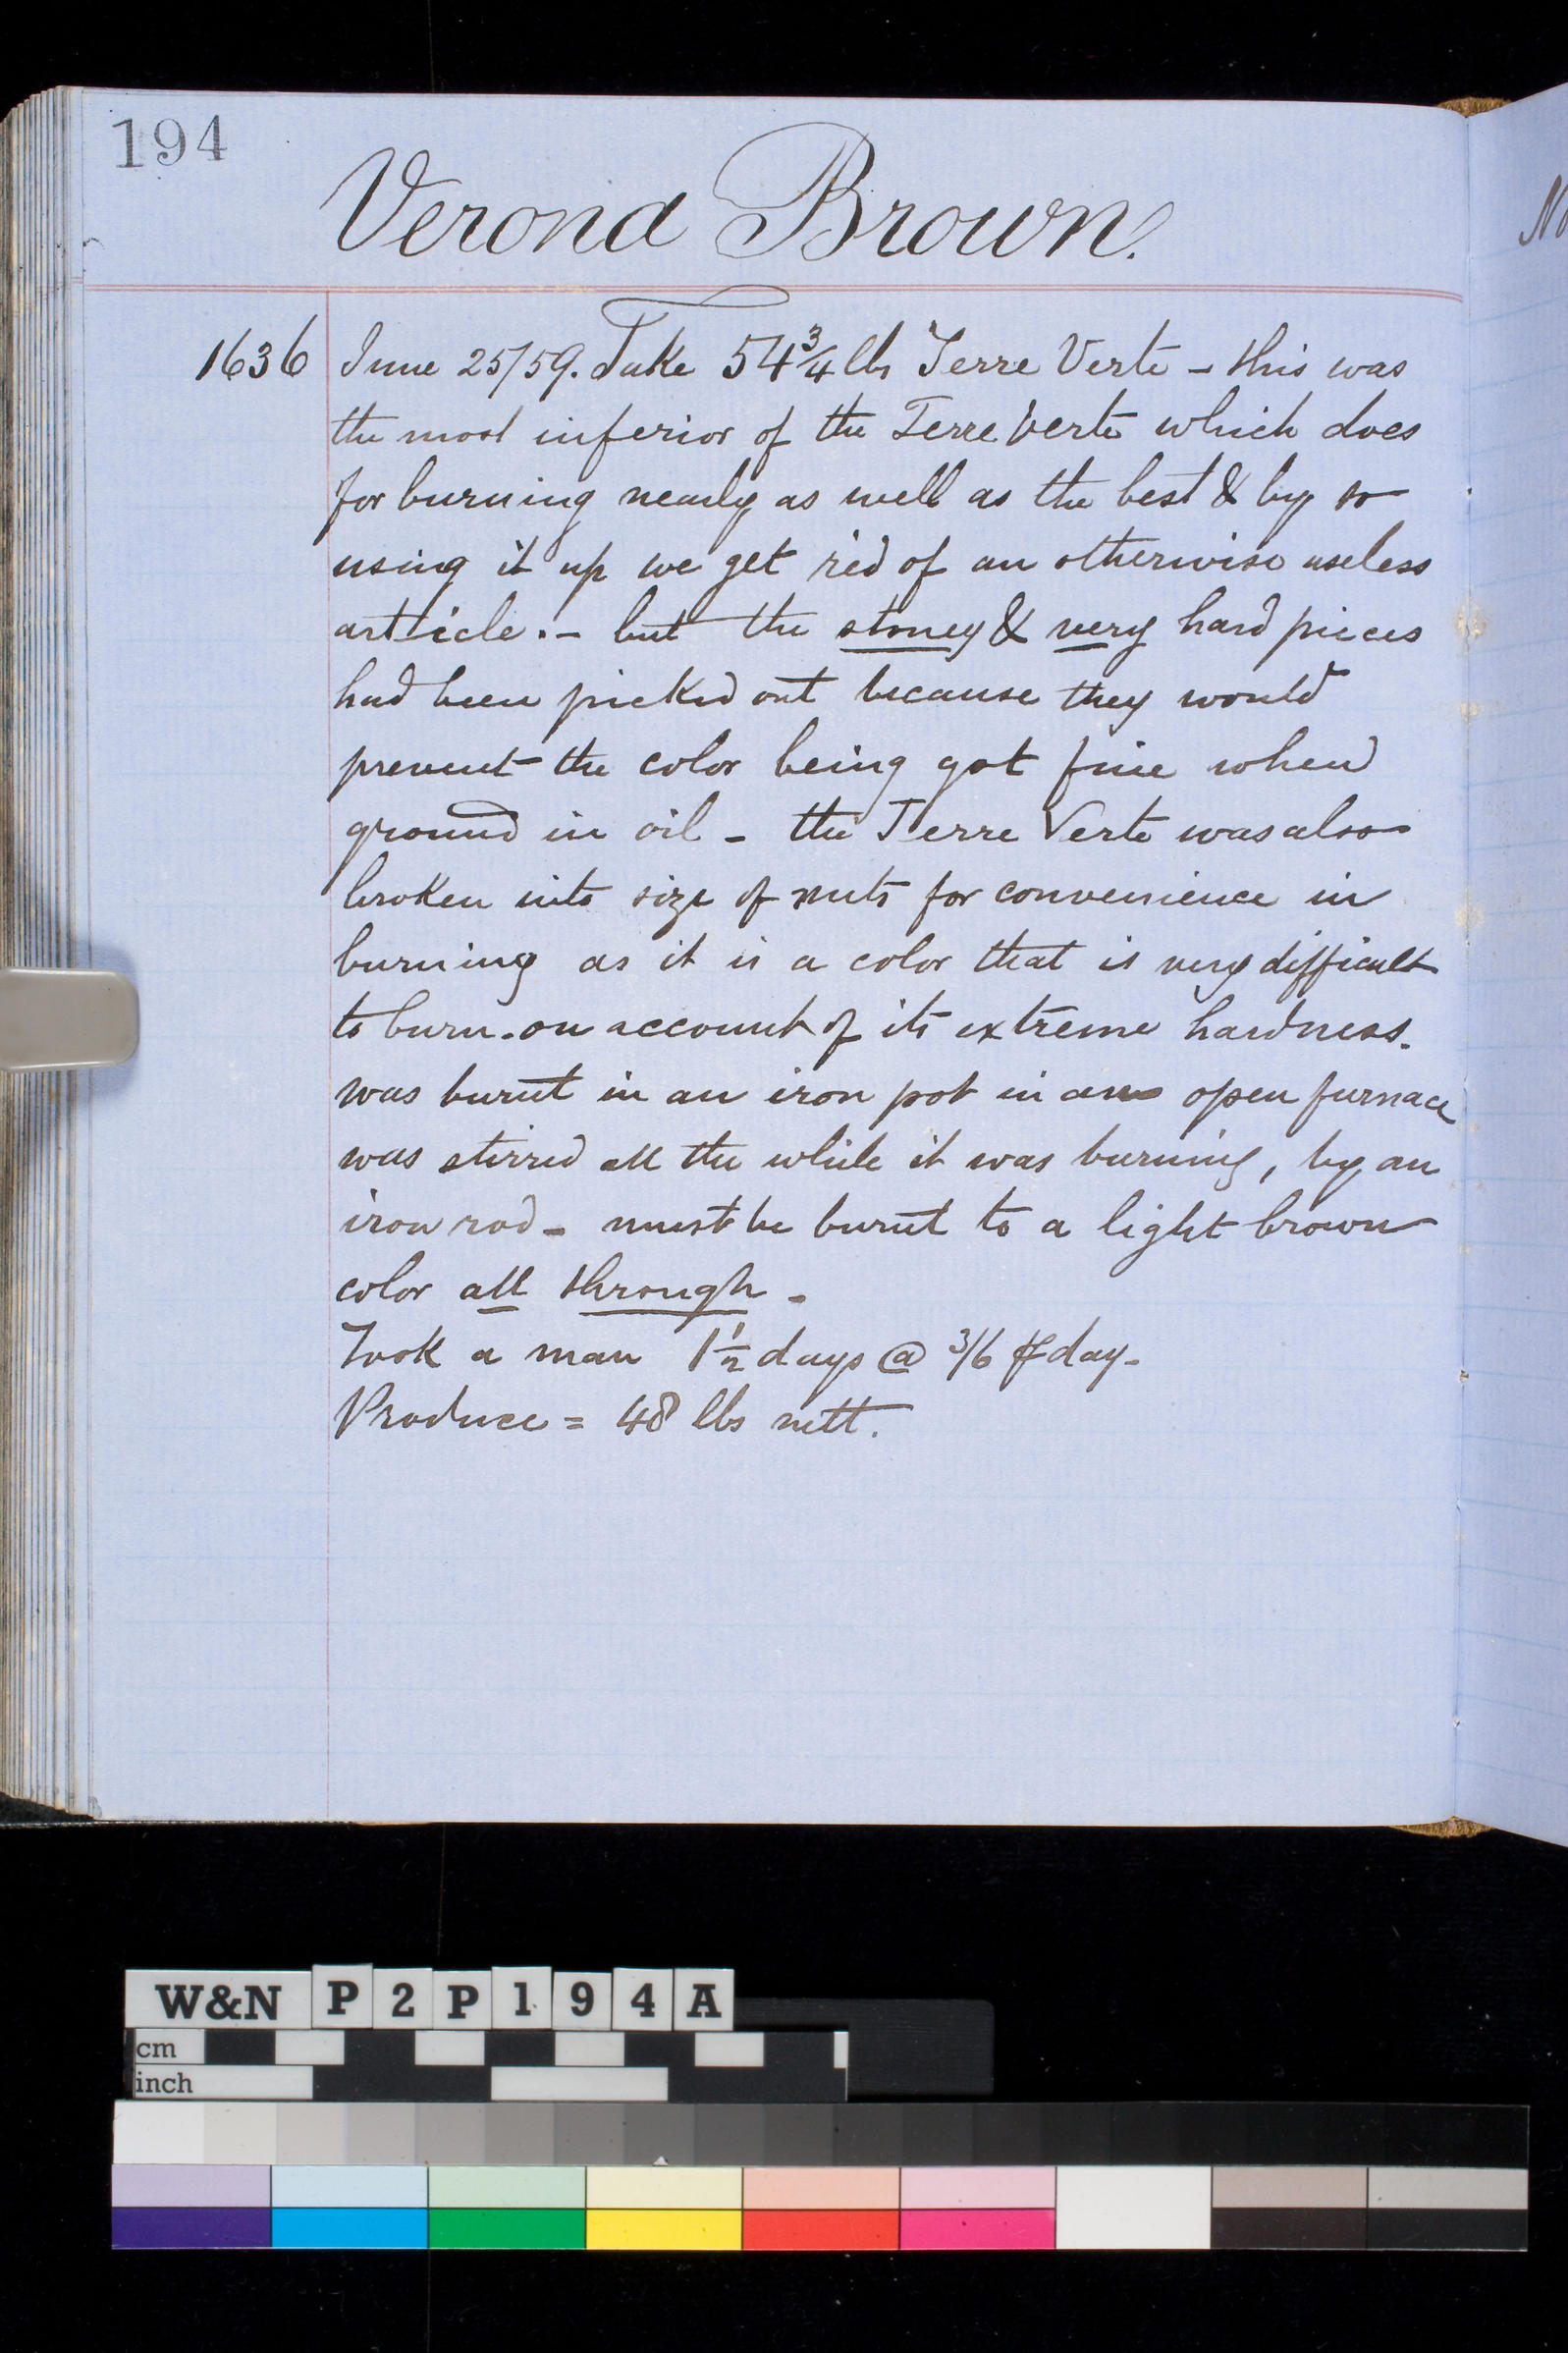 194
Verona Brown.
1636 June 25/59. Take 54 3/4 lbs Terre Verte - this was
the most inferior of the Terre Verte which does
for burning nearly as well as the best & by so
using it up we get rid of an otherwise useless
article. - but the stoney & very hard pieces
had been picked out because they would
prevent the color being got fine when
ground in oil - the Terre Verte was also
broken into size of nuts for convenience in
burning as it is a color that is very difficult
to burn. on account of its extreme hardness.
was burnt in an iron pot in an open furnace
was stirred all the while it was burning, by an
iron rod - must be burnt to a light brown
color all through -
Took a man 1 1/2 days @ 3/6 ⅌ day -
Produce = 48 lbs nett.
W&N P2P194A
cm
inch